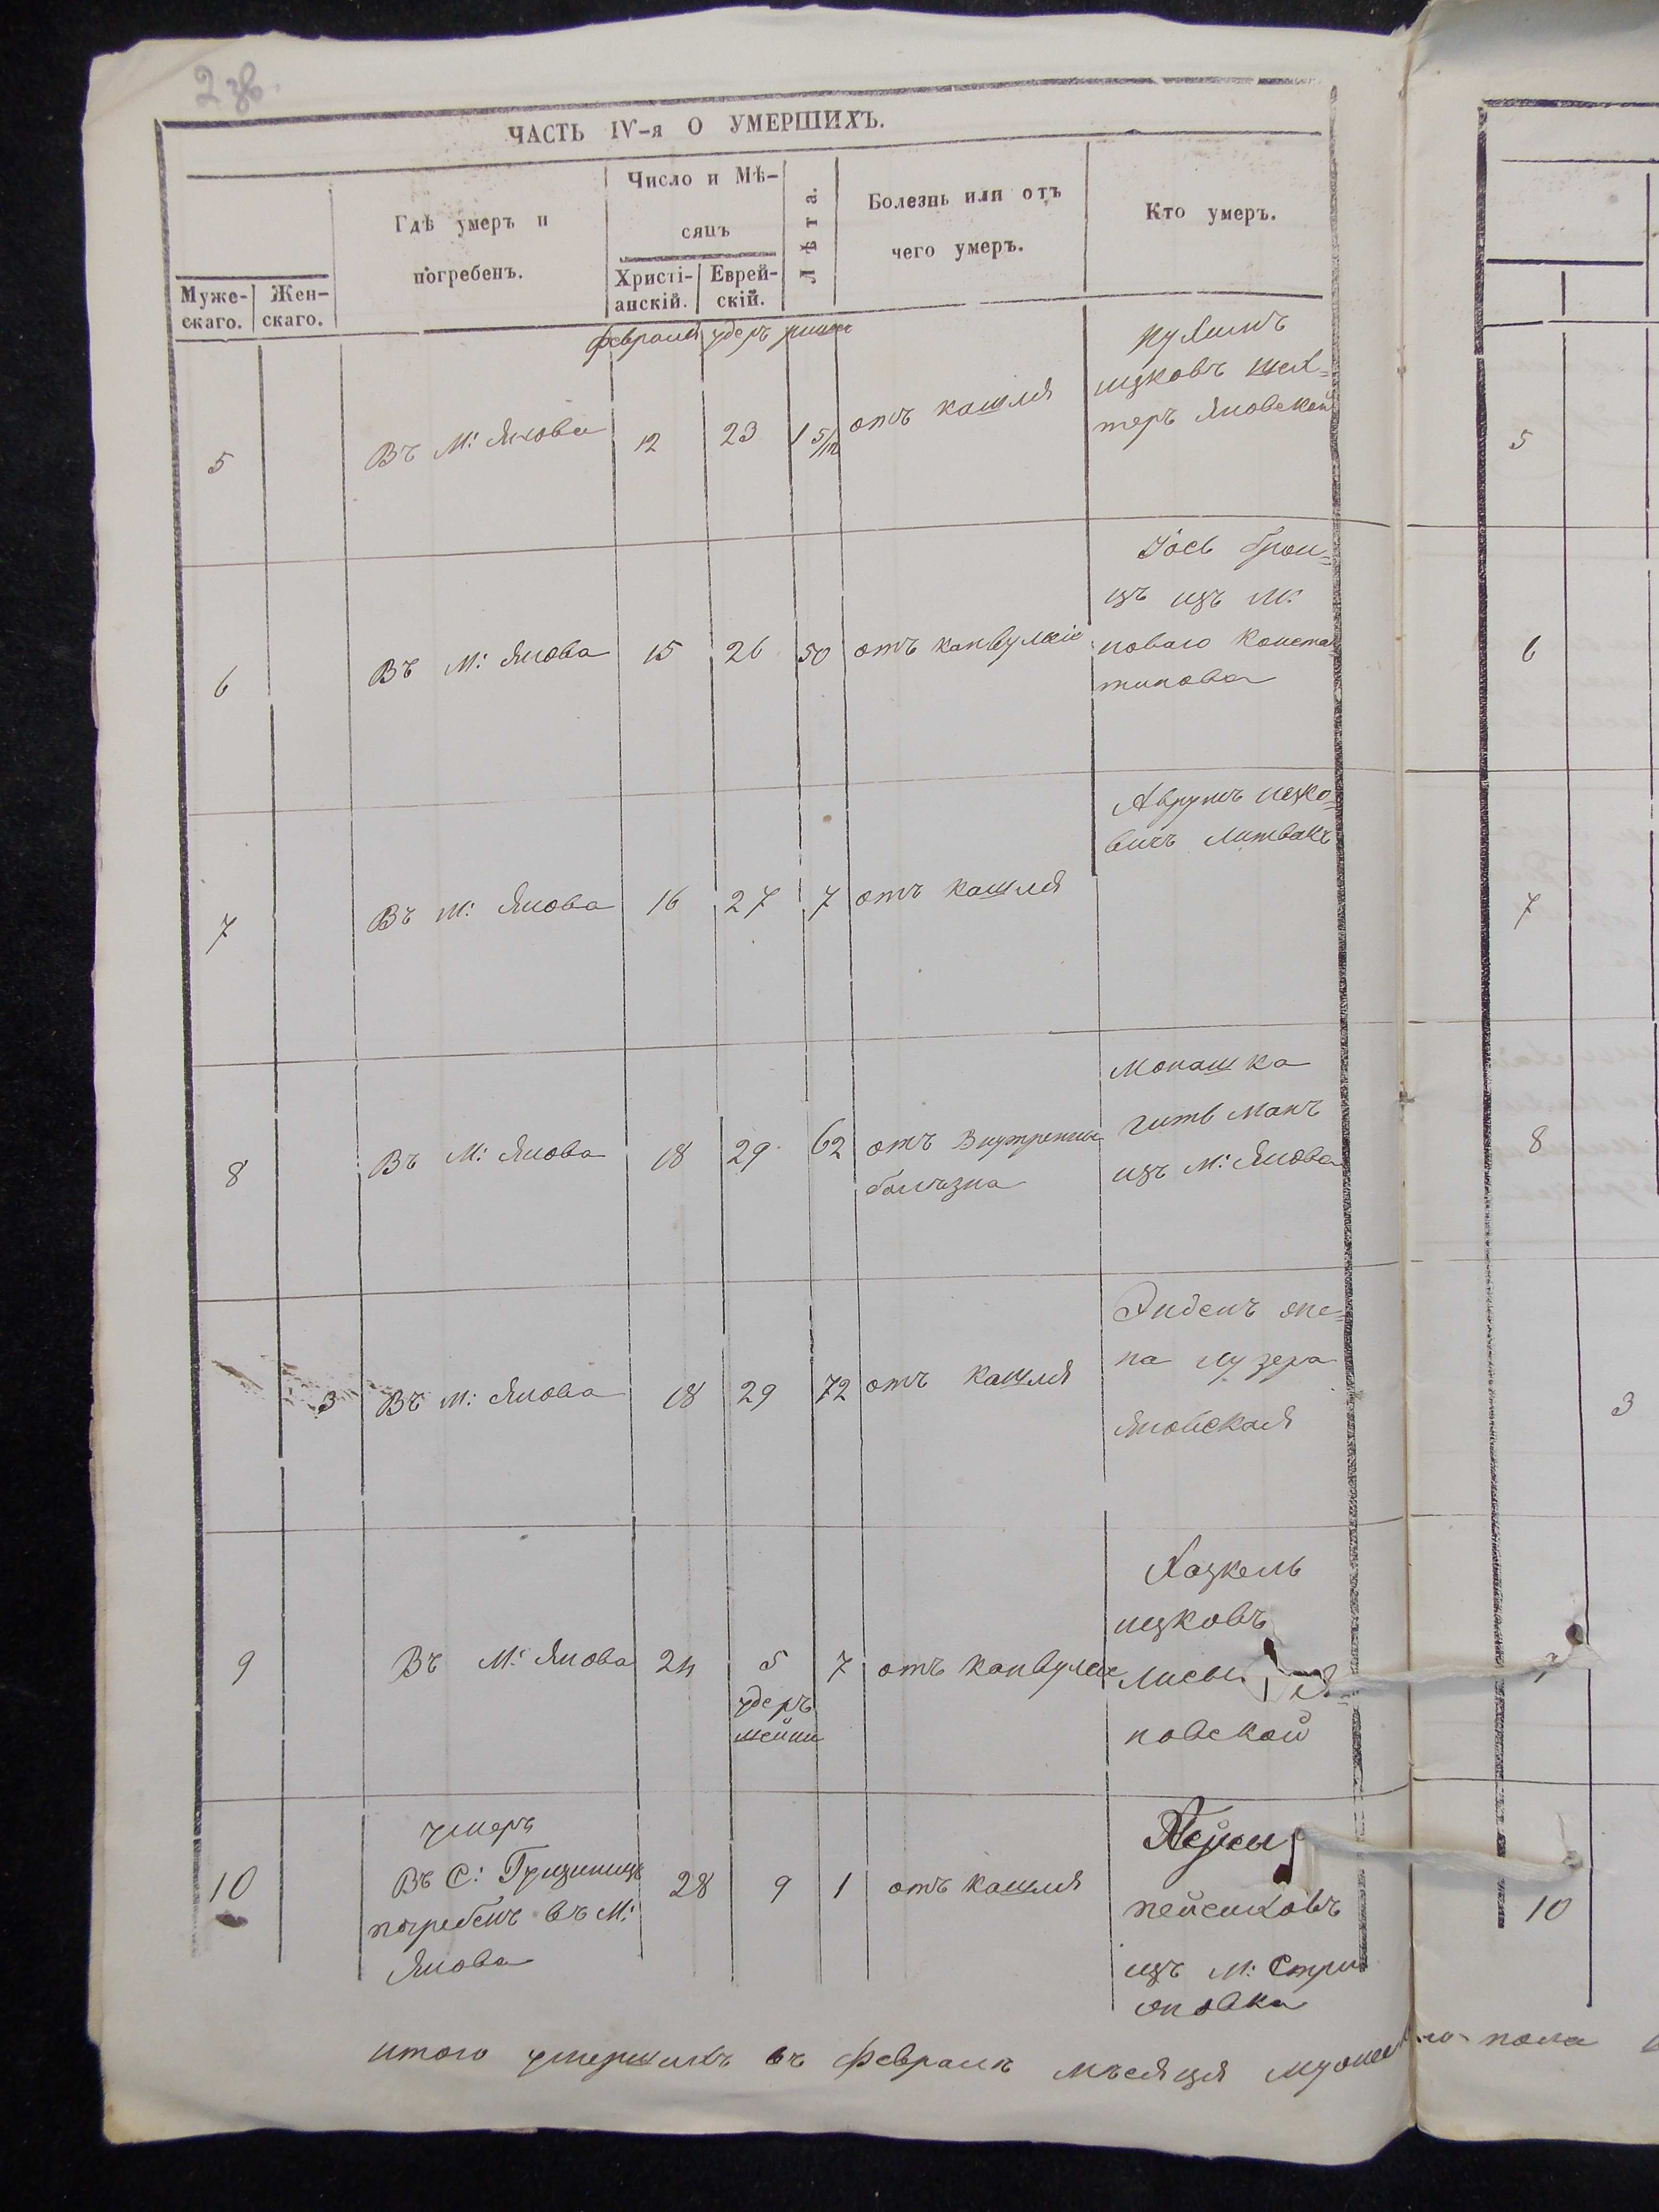 2 зв.
ЧАСТЬ IV-я О УМЕРШИХЪ.
Муже-
скаго.
Жен-
скаго.
Гдѣ умеръ и
погребенъ.
Число и Мѣ-
сяцъ
Христі-
анскій.
Еврей-
скій.
Лѣта.
Болезнь или отъ
чего умеръ.
Кто умеръ.
февраля удеръ ришен
5
Въ М: Янова
12
23
1 5/12
отъ кашля
ицковъ шех-
теръ Яновской
6
Въ М: Янова
15
26
50
отъ канвулсіе
Іось
изъ М:
новаго Конста
тинова
7
Въ М: Янова
16
27
7
отъ кашля
Аврумъ ицко-
вичъ Литвакъ
8
Въ М: Янова
18
29
62
отъ Внутренны
болѣзна
Монашка
гитъ манъ
изъ М: Янова
3
Въ М: Янова
18
29
72
отъ кашля
жe-
на лузера
Яновская
9
Въ М: Янова
24
5
удеръ
шейни
7
отъ канвулсіе
Хацкель
ицковъ
новской
10
умеръ
Въ С:
погребенъ въ М:
Янова
28
9
1
отъ кашля
пейсиховъ
изъ М: Стри
жовка
итого умершихъ въ февралѣ мѣсяця
пола
5
6
7
8
3
10